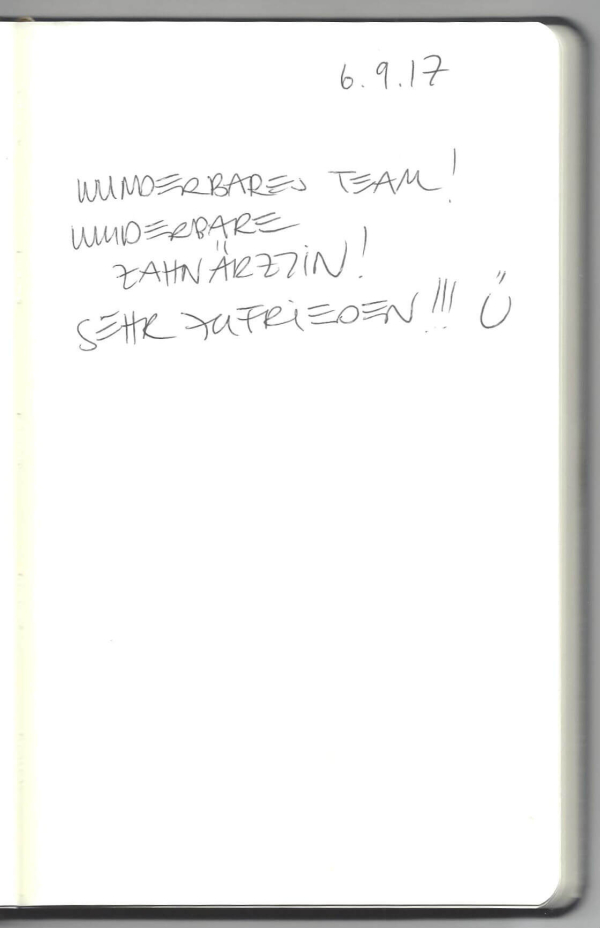 6.9.17
WUNDERBARES TEAM!
WUNDERBARE
ZAHNÄRZTIN!
SEHR ZUFRIEDEN!!! Ü